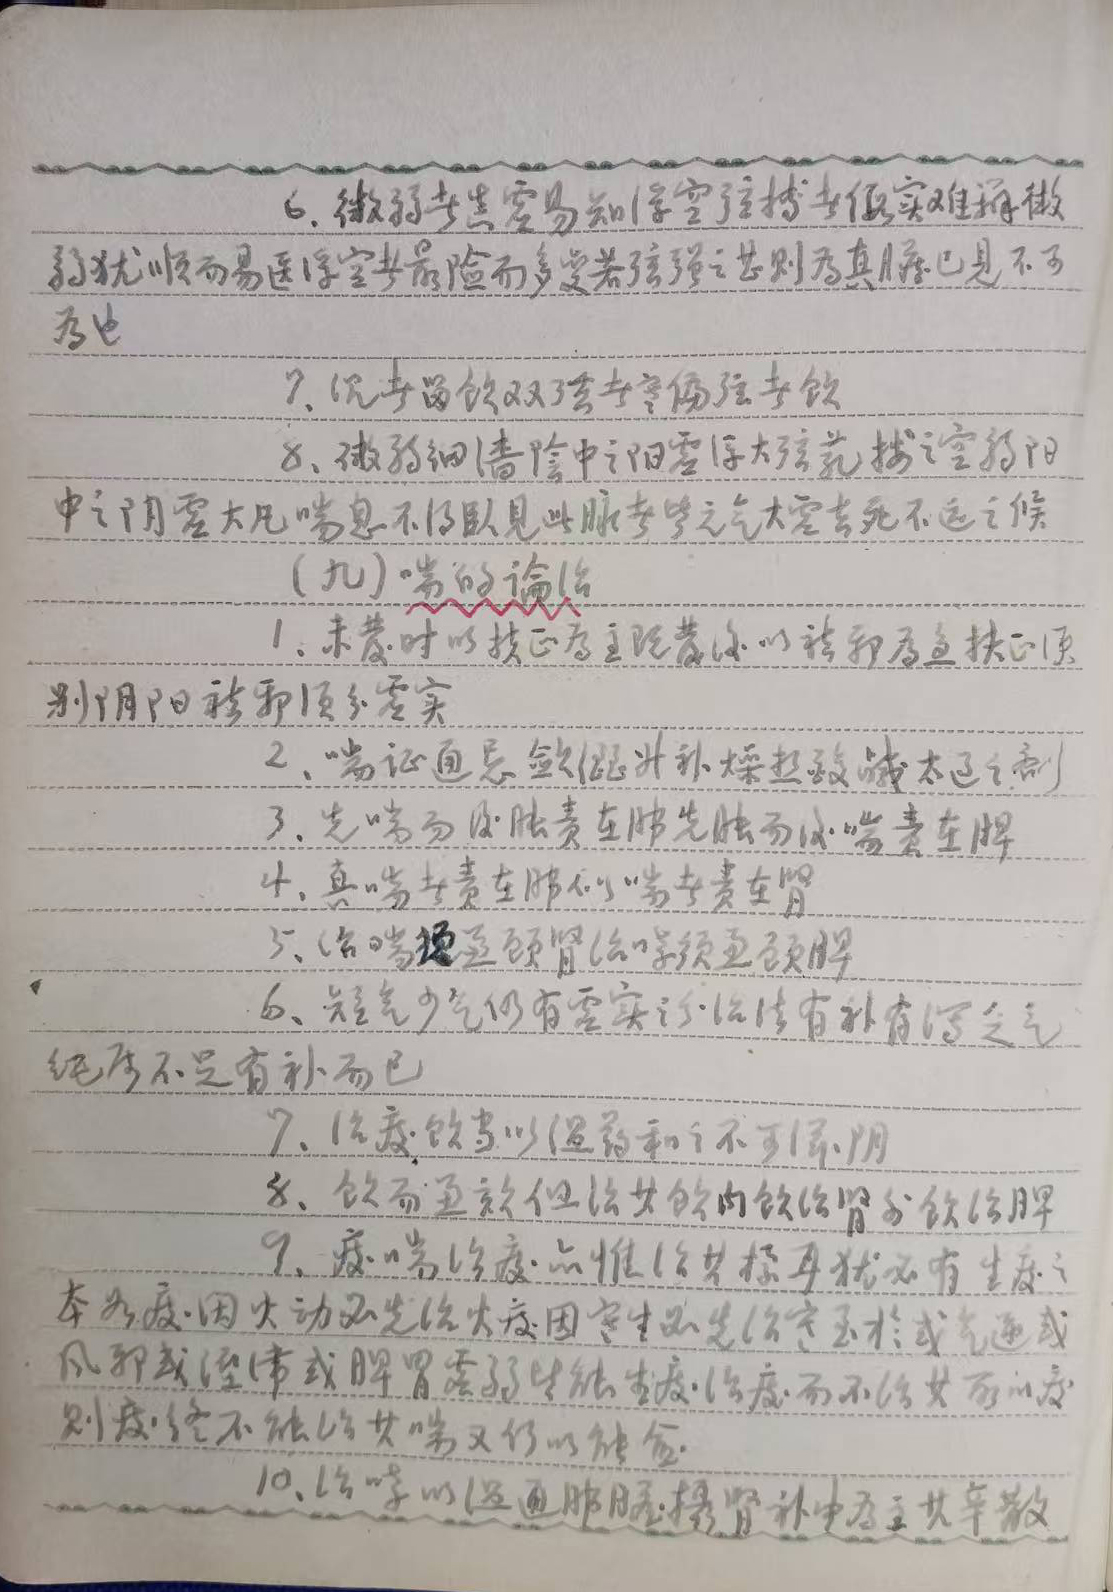 6、微弱者真虚易知浮空弦搏者假实难辨微
弱犹顺而易医浮空者最险而多变若弦强之甚则为真脏已见不可
为也
7、沉者留饮双弦者寒偏弦者饮
8、微弱细濇陰中之阳虚浮大弦芤按之空弱阳
中之阴虚大凡喘息不得臥見此脉者皆元气大虚去死不远之候
(九)喘的論治
1、未发时以扶正為主既发後以祛邪為急扶正須
别阴阳祛邪須分虚实
2、喘证通忌敛澀升补燥热酸鹹太过之劑
3、先喘而後胀责在肺先胀而後喘责在脾
4、真喘者责在肺似喘者责在腎
5、治喘須兼顾腎治哮須兼顾脾
6、短气少气仍有虚实之分治法有补有泻乏气
纯属不足有补而已
7、治痰饮当以温药和之不可伤阴
8、饮而兼欬但治其饮内饮治腎外饮治脾
9、痰喘治痰亦惟治其標耳犹必有生痰之
本如痰因火动必先治火痰因寒生必先治寒至於或气逆或
风邪或溼滞或脾胃虚弱皆能生痰治痰而不治其所以痰
则痰终不能治其喘又何以能愈
10、治哮以温通肺脏摄腎补中為主其辛散